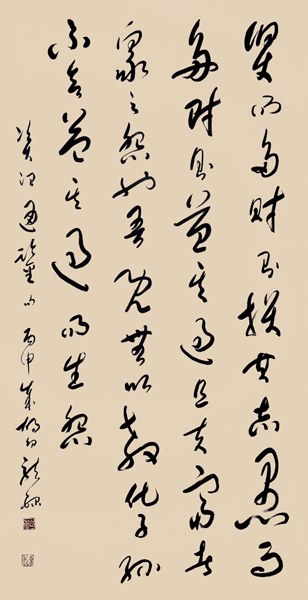 賢而多財則損其志愚而
多財則益其過且夫富者
衆之怨也吾既無以教化子孫
不欲益其過而生怨
資治通鑒句 丙申歲